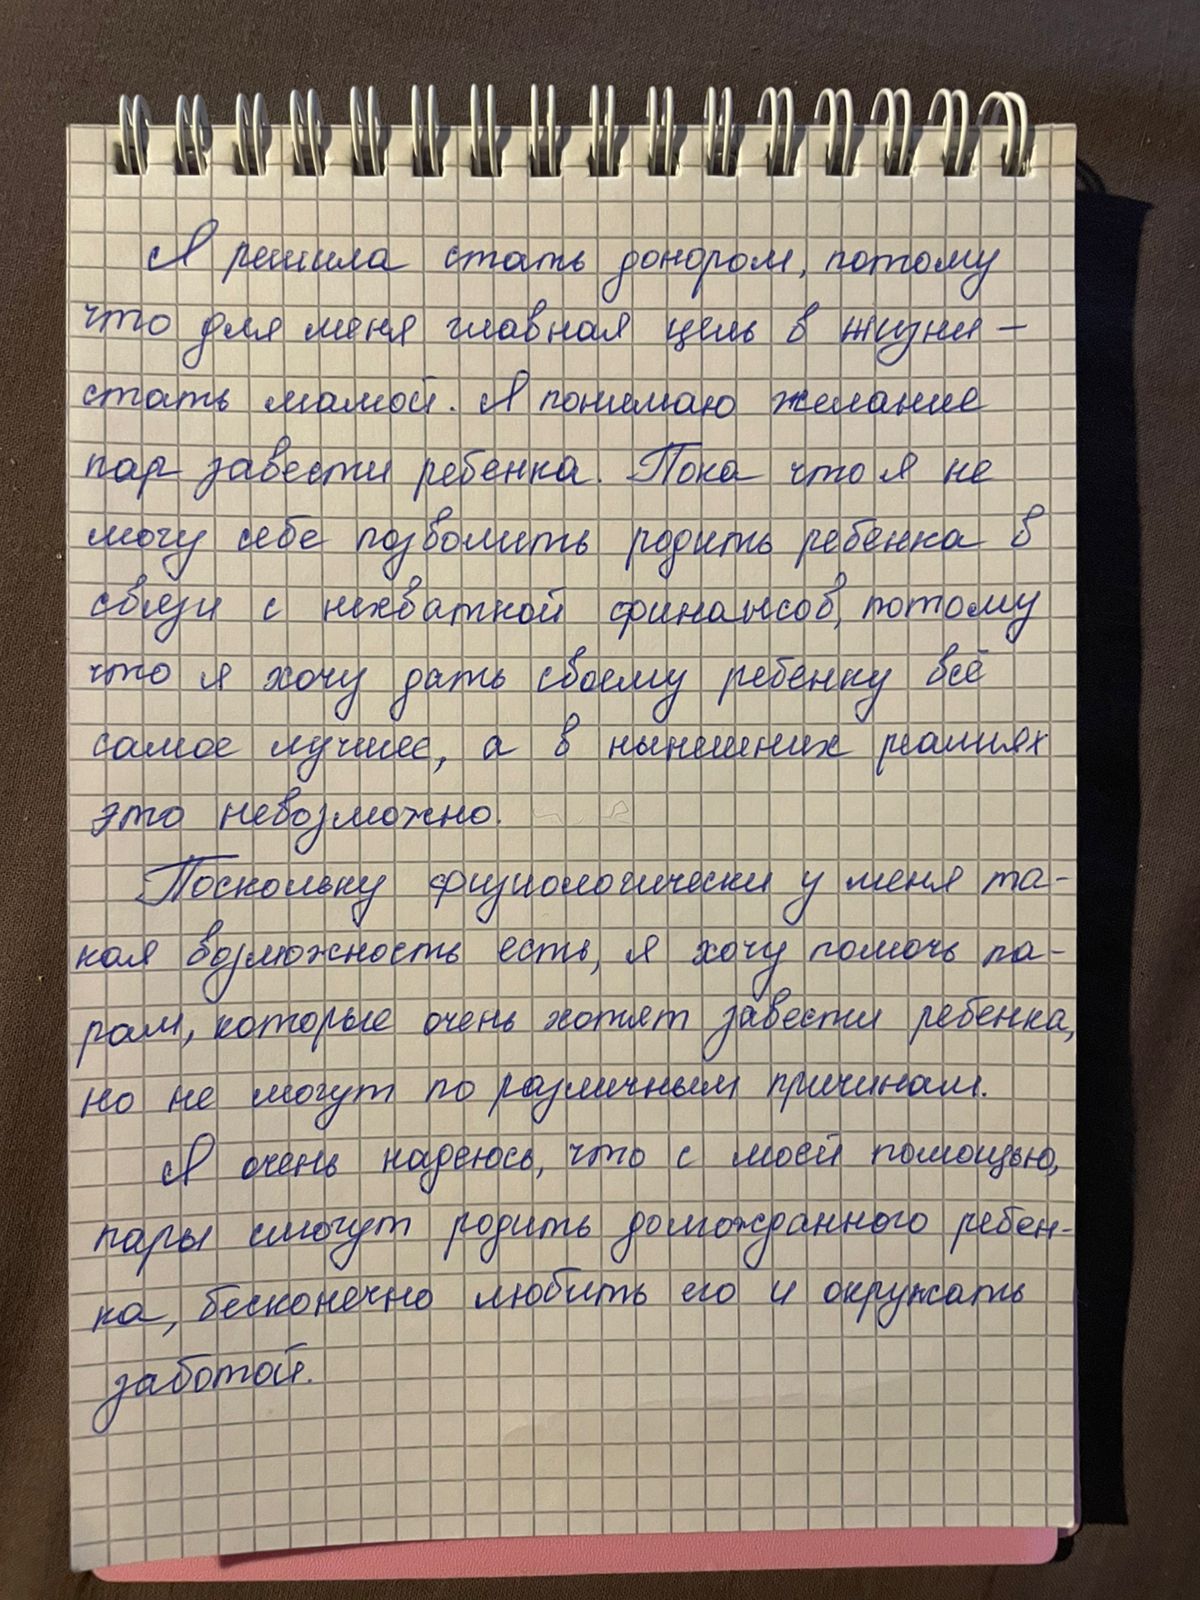 Я решила стать донором, потому
что для меня главная цель в жизни —
стать мамой. Я понимаю желание
пар завести ребенка. Пока что я не
могу себе позволить родить ребенка в
связи с нехваткой финансов, потому
что я хочу дать своему ребенку всё
самое лучшее, а в нынешних реалиях
это невозможно.
Поскольку физиологически у меня та-
кая возможность есть, я хочу помочь па-
рам, которые очень хотят завести ребенка,
но не могут по различным причинам.
Я очень надеюсь, что с моей помощью,
пары смогут родить долгожданного ребен-
ка, бесконечно любить его и окружать
заботой.